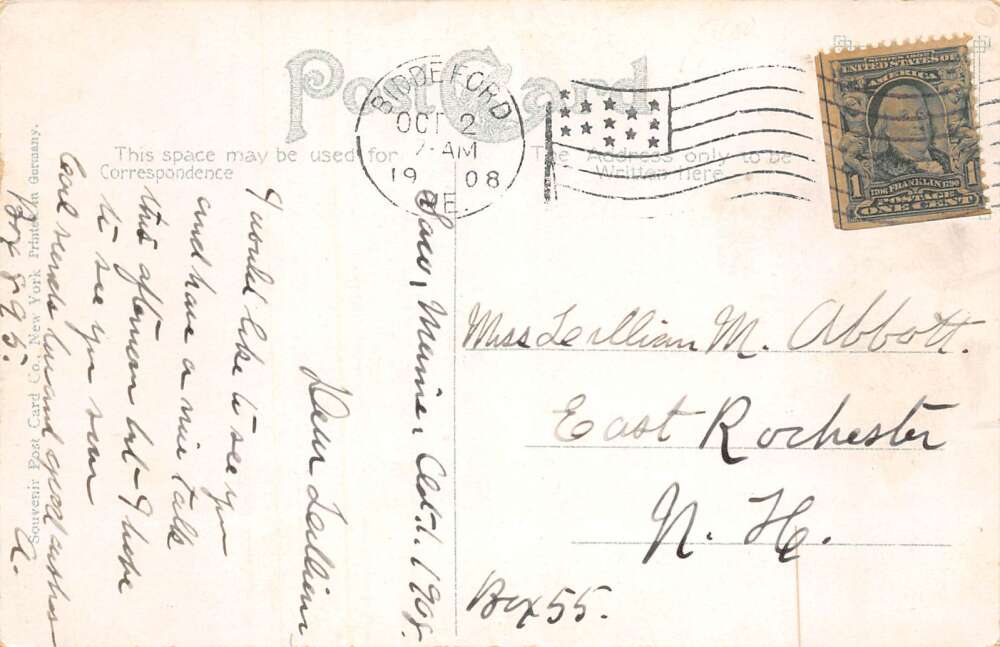 Post Card
BIDDEFORD
OCT 2
7-AM
19 08
ME
This space may be used for
Correspondence
The Address only to be
Written here
UNITED STATES OF
AMERICA
1706 FRANKLIN 1790
1 POSTAGE 1
ONE CENT
Saco, Maine, Oct. 1, 1908.
Dear Lillian
I would like to see you
and have a nice talk
this afternoon but I hope
to see you soon
Carl sends love and good wishes
Box 895. A.
Miss Lillian M. Abbott.
East Rochester
N. H.
Box 55.
Souvenir Post Card Co., New York Printed in Germany.